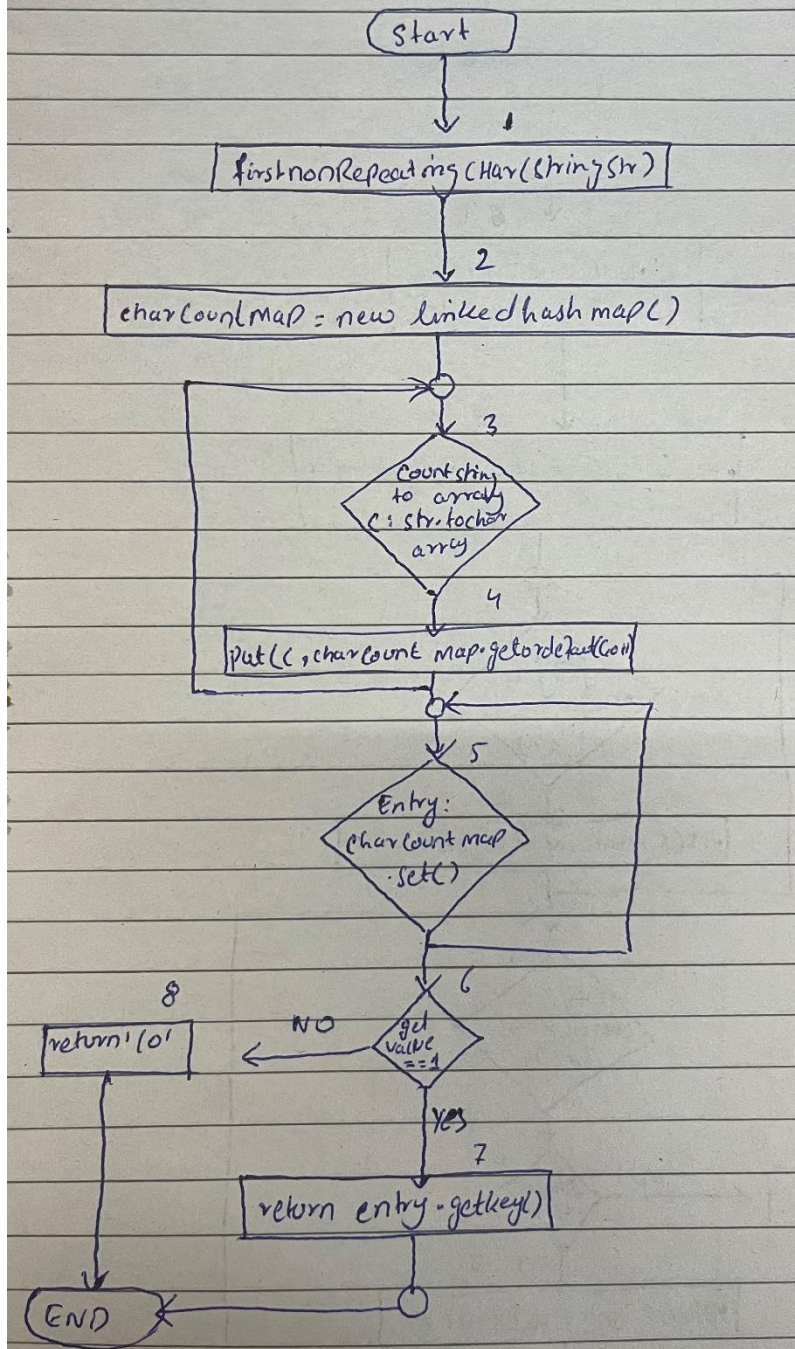 Start
1
firstnonRepeating CHar(String Str)
2
charCountMap = new linkedhashmap()
3
Count string
to array
C: str.tochar
array
4
put(c, charCount map.getordefault(
5
Entry:
charCount map
.set()
6
get
value
==1
NO
8
return '\0'
Yes
7
return entry.getkey()
END